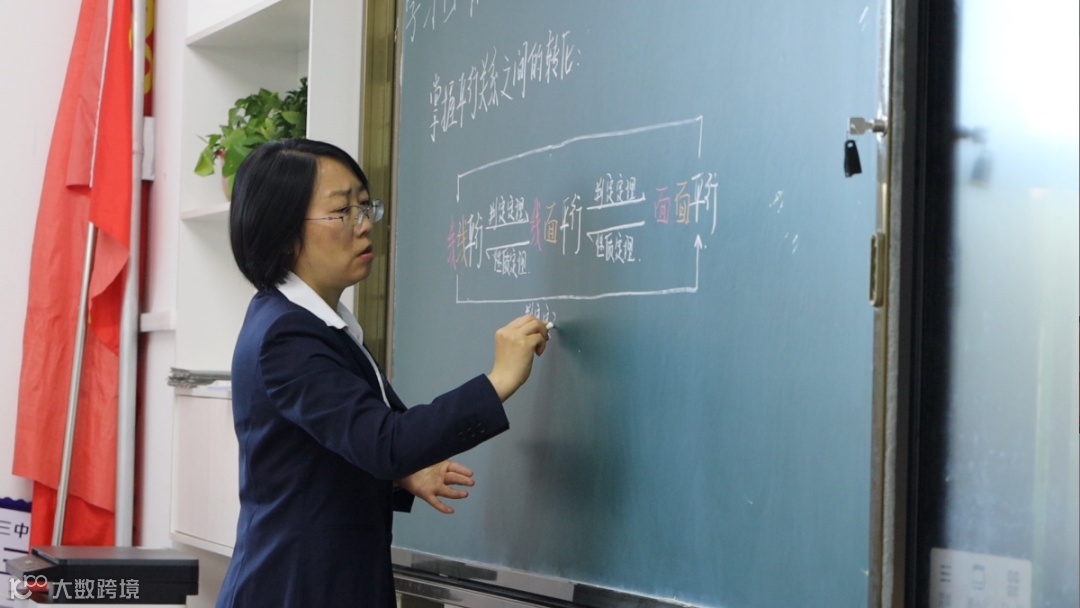 掌握平行关系之间的转化:
判定定理 判定定理
线线平行 线面平行 面面平行
性质定理 性质定理
三中
大数跨境